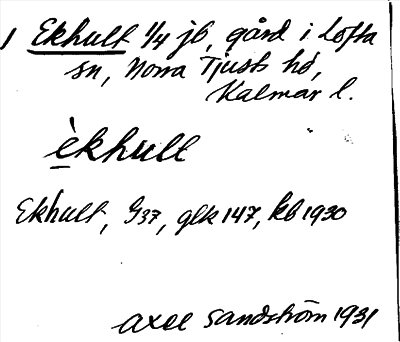 1 Ekhult 1/4 jb, gård i Lofta
sn, Norra Tjusts hd,
Kalmar l.
èkhult
Ekhult, G37, glk 147, kb 1930
Axel Sandström 1931